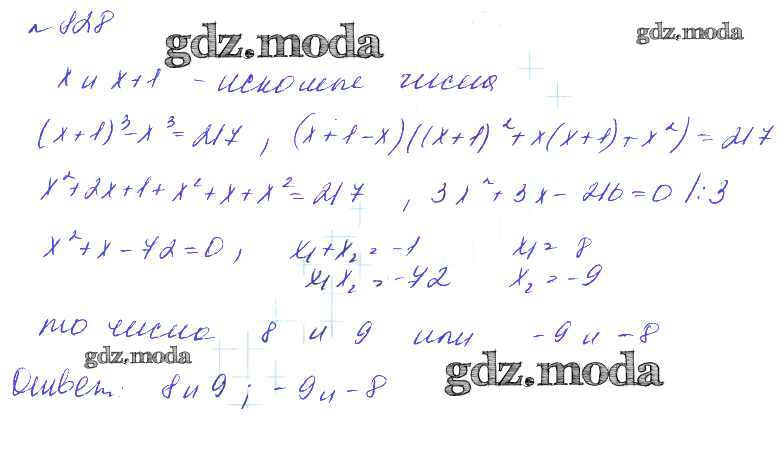 № 828
gdz.moda
gdz.moda
x и x+1 - искомые числа
(x+1)³-x³=217, (x+1-x)((x+1)²+x(x+1)+x²)=217
x²+2x+1+x²+x+x²=217, 3x²+3x-216=0 /:3
x²+x-72=0, x₁+x₂=-1 x₁=8
x₁x₂=-72 x₂=-9
то числа 8 и 9 или -9 и -8
gdz.moda
Ответ: 8 и 9; -9 и -8
gdz.moda